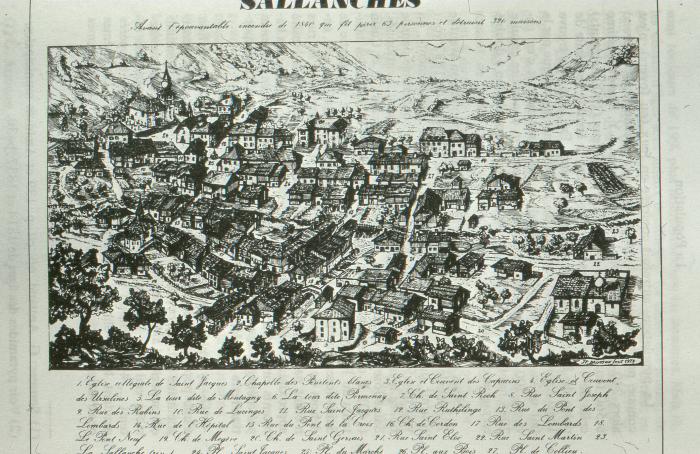 SALLANCHES
Avant l'épouvantable incendie de 1840 qui fit périr 63 personnes et détruisit 391 maisons
1. Eglise collégiale de Saint Jacques 2. Chapelle des Pénitents blancs 3. Eglise et Couvent des Capucins 4. Eglise et Couvent
des Ursulines 5. La tour dite de Montagny 6. La tour dite 7. Ch. de Saint Roch 8. Rue Saint Joseph
9. Rue des Rubins 10. Rue de Lucinges 11. Rue Saint Jacques 12. Rue 13. Rue du Pont des
Lombards 14. Rue de l'Hôpital 15. Rue du Pont de la Croix 16. Ch. de Cordon 17. Rue des Lombards 18.
Le Pont Neuf 19. Ch. de Megève 20. Ch. de Saint Gervais 21. Rue Saint Eloi 22. Rue Saint Martin 23.
La Sallanche 24. Pl. Saint Jacques 25. Pl. du Marché 26. Pl. aux 27. Pl. de